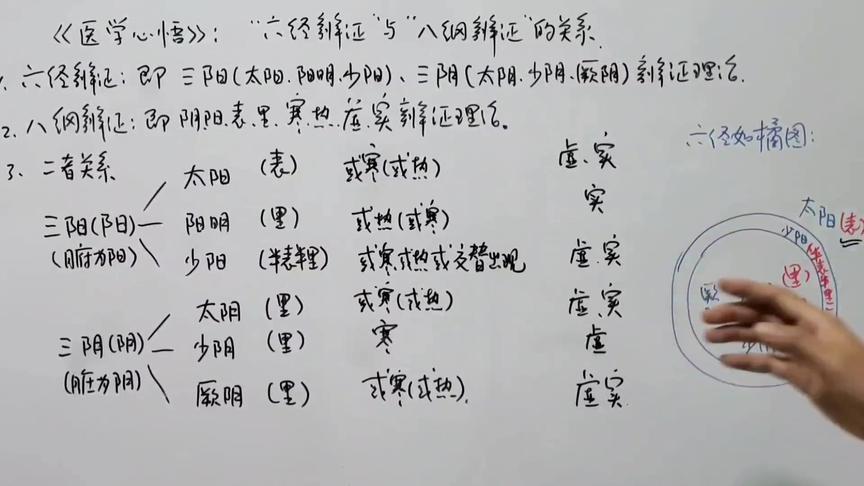 《医学心悟》："六经辨证"与"八纲辨证"的关系.
1. 六经辨证：即 三阳(太阳.阳明.少阳)、三阴(太阴.少阴.厥阴)辨证理论.
2. 八纲辨证：即 阴阳.表里.寒热.虚实 辨证理论。
3、二者关系
太阳 (表) 或寒(或热) 虚、实
三阳(阳) 阳明 (里) 或热(或寒) 实
(腑为阳) 少阳 (半表半里) 或寒或热或交替出现 虚、实
太阴 (里) 或寒(或热) 虚、实
三阴(阴) 少阴 (里) 寒 虚
(脏为阴) 厥阴 (里) 或寒(或热). 虚、实.
六经如橘图：
太阳(表)
少阳(半表半里)
(里)
厥